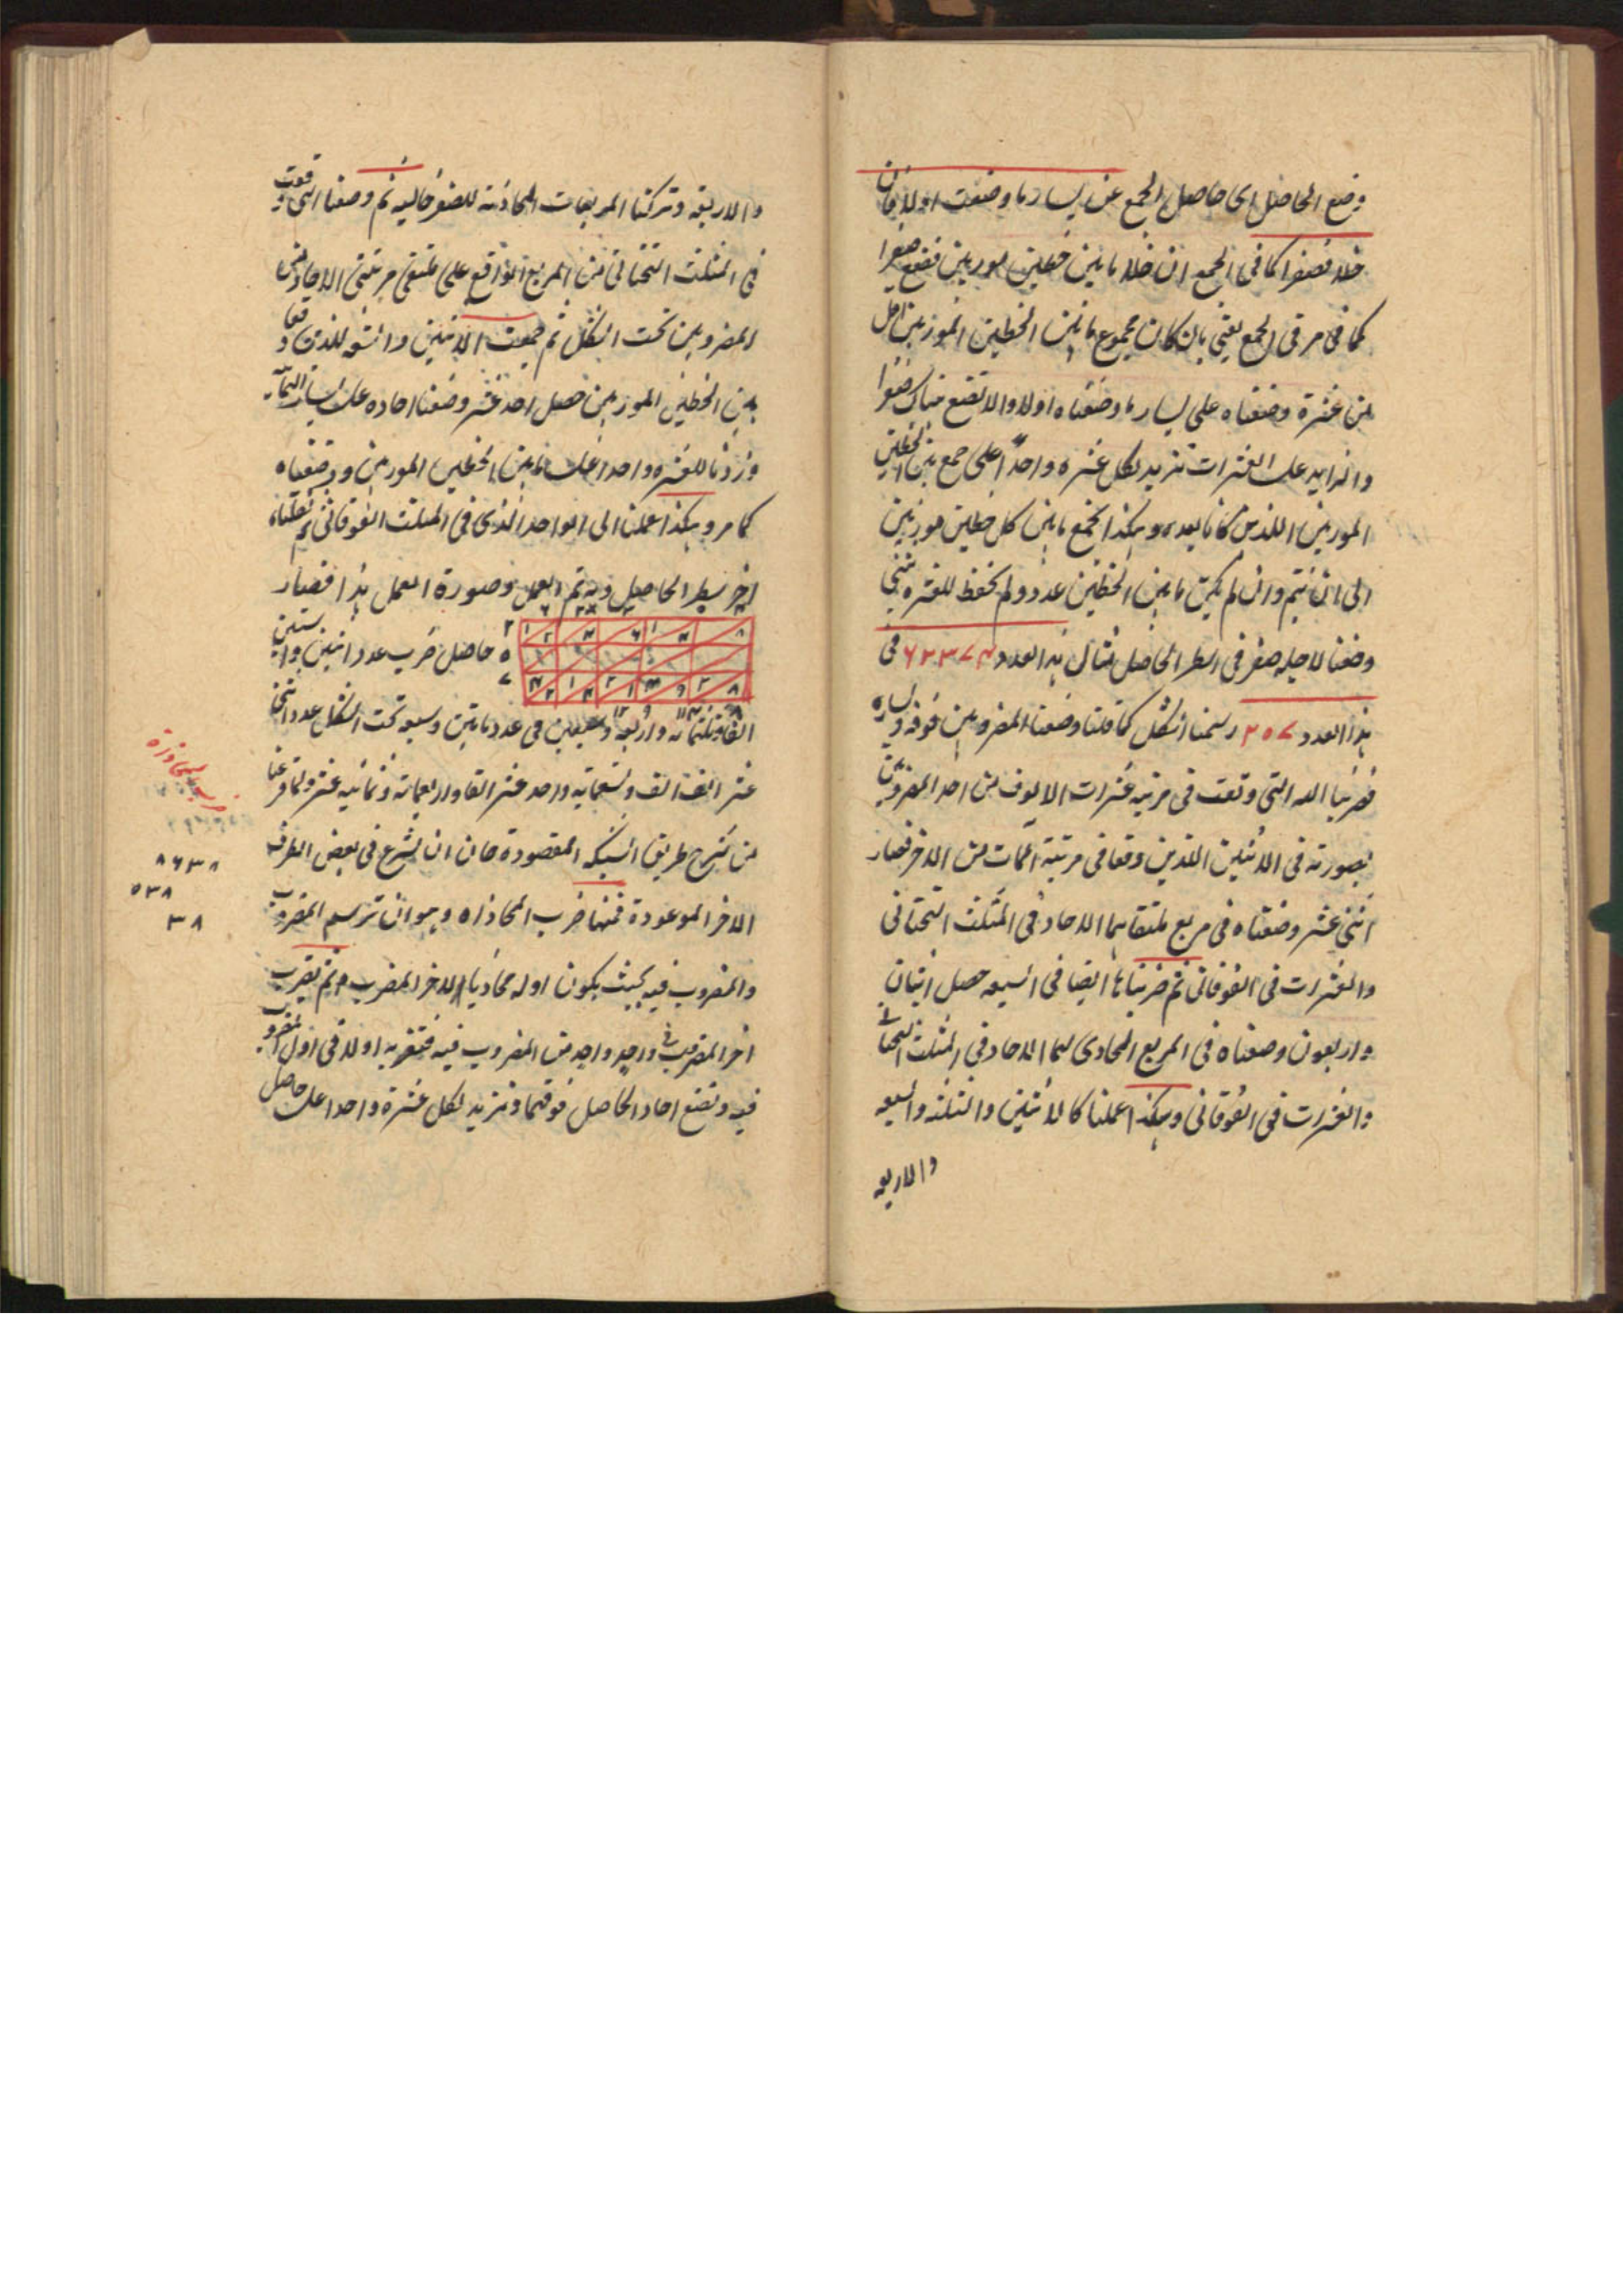 وضع الحاصل اى حاصل الجمع عن يسار ما وضعت اولا فان
خلا فصفرا كما فى الجمع ان خلا ما بين خطين موربين فضع صفرا
كما فى مر فى الجمع يعنى بان كان مجموع ما بين الخطين الموربين اقل
من عشرة وضعناه على يسار ما وضعناه اولا والا تضع هناك صفرا
والزايد على العشرات تزيد لكل عشرة واحدا على جمع بين الخطين
الموربين اللذين كانا بعده وهكذا تجمع ما بين كل خطين موربين
الى ان تتم وان لم يكن ما بين الخطين عدد ولم تحفظ للعشرة شئ
وضعنا لاجله صفر فى سطر الحاصل مثال هذا العدد ۶۲۳۷۴ فى
هذا العدد ۲۰۷ رسمنا الشكل كما قلنا وضعنا المضروبين فوقه ويساره
فضربنا الستة التى وقعت فى مرتبة عشرات الالوف من احد المضروبين
بصورته فى الاثنين اللذين وقعا فى مرتبة المآت من الاخر فصار
اثنى عشر وضعناه فى مربع ملتقاهما الاحاد فى المثلث التحتانى
والعشرات فى الفوقانى ثم ضربناها ايضا فى السبعة حصل اثنان
واربعون وضعناه فى المربع المحاذى لهما الاحاد فى المثلث التحتانى
والعشرات فى الفوقانى وهكذا عملنا كالاثنين والثلثة والسبعة
والاربعه
والاربعة وتركنا المربعات المحاذية للصفر خاليه ثم وضعنا التى وقعت
فى المثلث التحتانى من المربع الواقع على ملتقى مرتبتى الاحاد من
المضروبين تحت الشكل ثم جمعت الاثنين والتسعة اللذين وقعا
بين الخطين الموربين حصل احد عشر وضعنا احاده على يسار الثمانية
وزدنا للعشرة واحدا على ما بين الخطين الموربين ووضعناه
كما مر وهكذا عملنا الى الواحد الذى فى المثلث الفوقانى ثم نقلناه
اخر سطر الحاصل وبه تم العمل وصورة العمل هذا فصار
حاصل ضرب عدد اثنين وستين
الفا وثلثمائة واربعة وسبعين فى عدد مائتين وسبعة تحت الشكل عدد اثنى
عشر الف الف وتسعمائة واحد عشر الفا واربعمائة وثمانية عشر ولما فرغنا
من شرح طريق الشبكة المقصودة حان ان نشرع فى بعض الطرق
الاخر الموعودة فمنها ضرب المحاذاة وهو ان ترسم المضروب
والمضروب فيه بحيث يكون اوله محاذيا لاخر المضروب ثم تضرب
اخر المضروب فى واحد واحد من المضروب فيه فتضربه اولا فى اول المضروب
فيه وتضع احاد الحاصل فوقهما وتزيد لكل عشرة واحدا على حاصل
۸۶۳۸
۵۳۸
۳۸